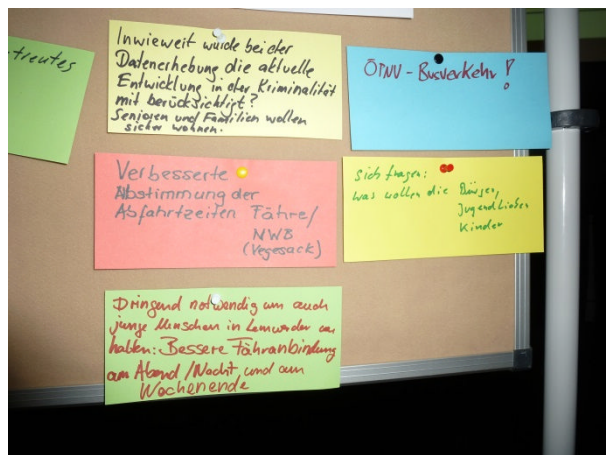 treutes
Inwieweit wurde bei der
Datenerhebung die aktuelle
Entwicklung in der Kriminalität
mit berücksichtigt?
Senioren und Familien wollen
sicher wohnen.
ÖPNV - Busverkehr!
Verbesserte
Abstimmung der
Abfahrtzeiten Fähre/
NWB
(Vegesack)
Sich fragen:
Was wollen die Bürger,
Jugendlichen
Kinder
Dringend notwendig um auch
junge Menschen in Lemwerder zu
halten: Bessere Fähranbindung
am Abend/Nacht, und am
Wochenende